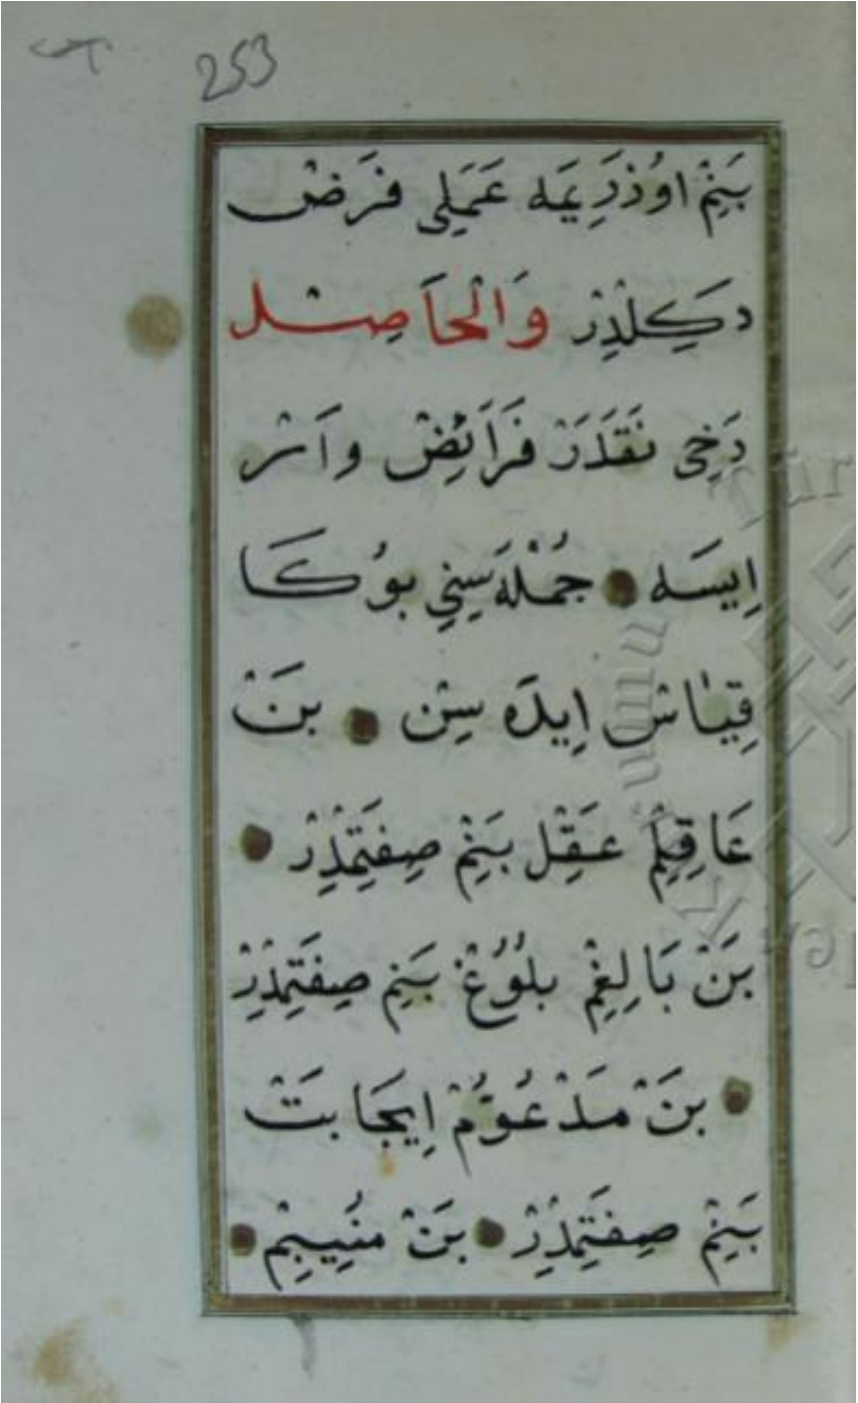 253
بَنِمْ اوُذرَِيمَه عَمَلِى فَرَضْ
دَكِلْدِرْ وَالْحَاصِلْ
دَخِى نَقَدَرْ فَرَائِضْ وَاَسْرْ
اِيسَه جُمْلَه سِنِى بوُكَا
قِيَاسْ اِيدَه سِنْ بَنْ
عَاقِلِمْ عَقِلْ بَنِمْ صِفَتِمْدِرْ
بَنْ بَالِغِمْ بلُوُغْ بَنِمْ صِفَتِمْدِرْ
بَنْ مَدْعُوُّمْ اِيجَابَتْ
بَنِمْ صِفَتِمْدِرْ بَنْ مُنِيبِمْ